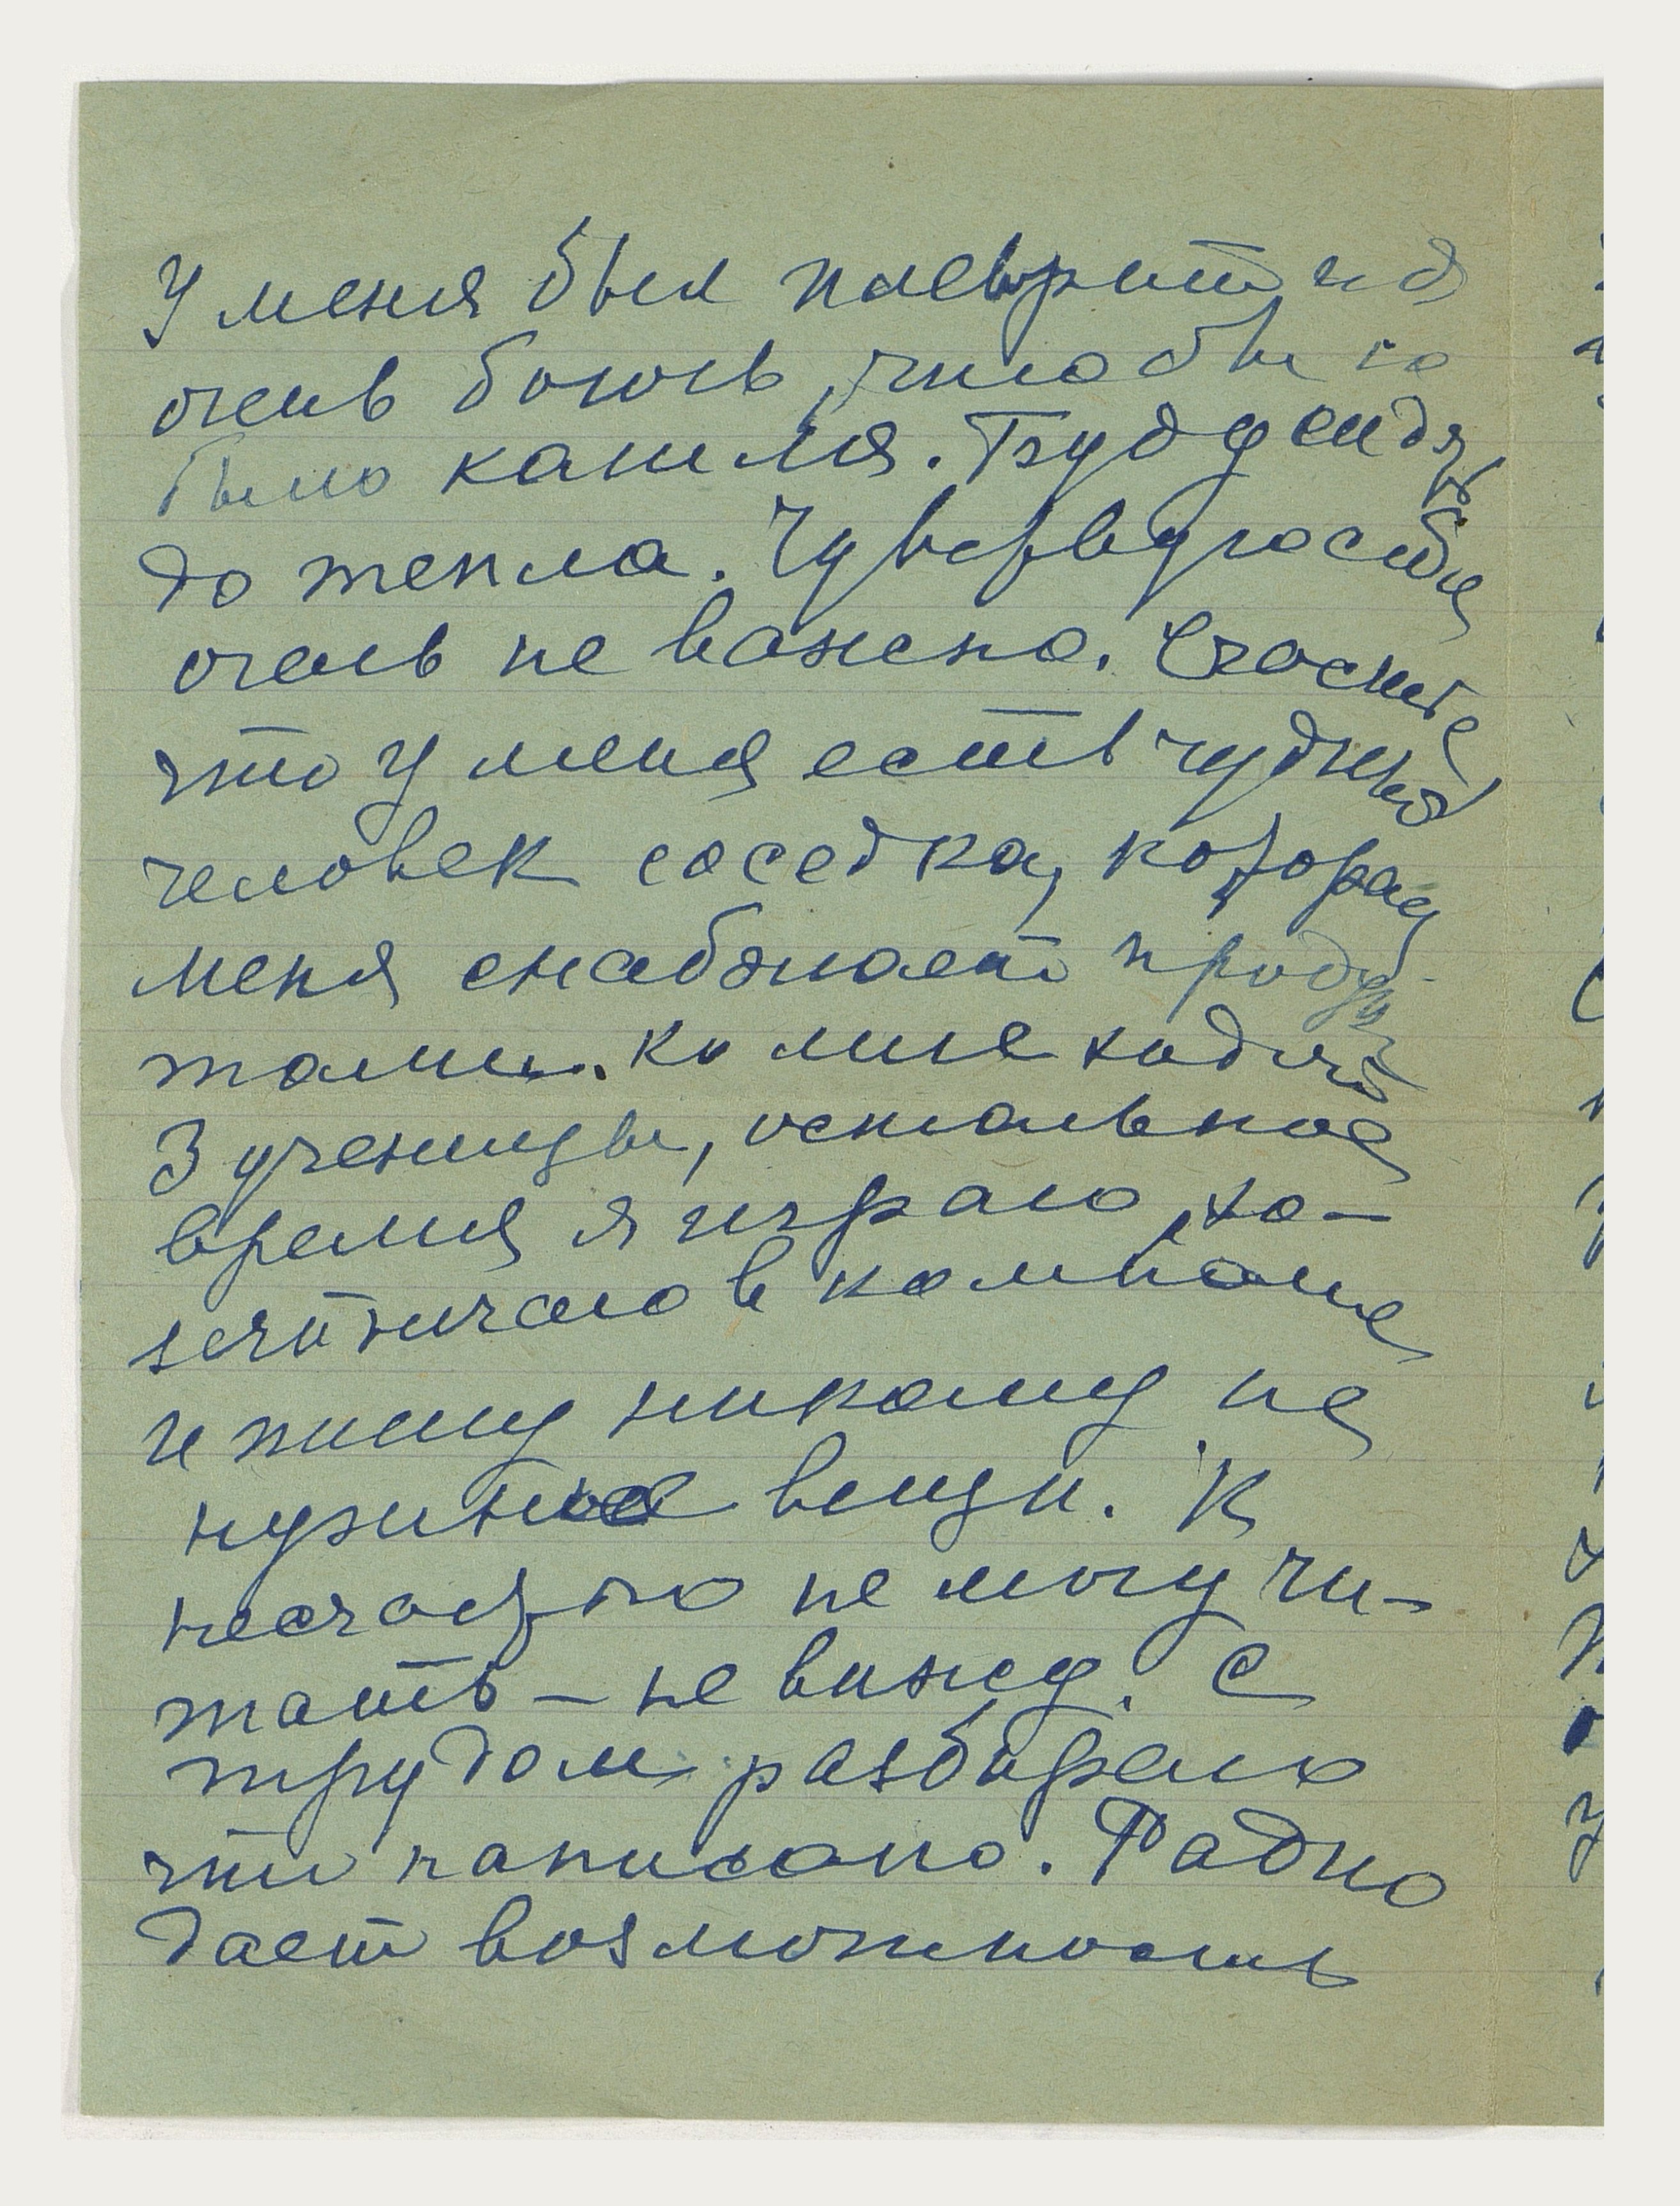 У меня был плеврит и я
очень боюсь, чтобы не
было кашля. Буду сидеть
до тепла. Чувствую себя
очень не важно. Счастье
что у меня есть чудный
человек соседка, которая
меня снабжает продук-
тами. Ко мне ходят
3 ученицы, остальное
время я играю, за-
нимаюсь в
и пишу никому не
нужные вещи. К
несчастью не могу чи-
тать – не вижу. С
трудом разбираю
что написано. Радио
дает возможность